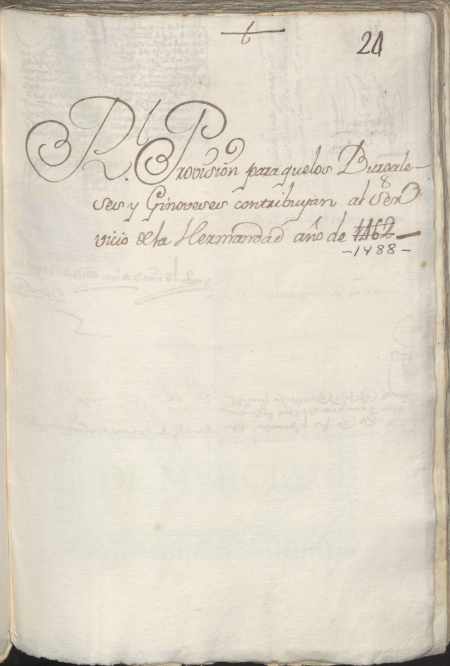 6
24
Rl. Provision para quelos Burgale-
ses y Ginoveses contribuyan al Ser
8
vicio de la Hermandad año de 1462
-1488-